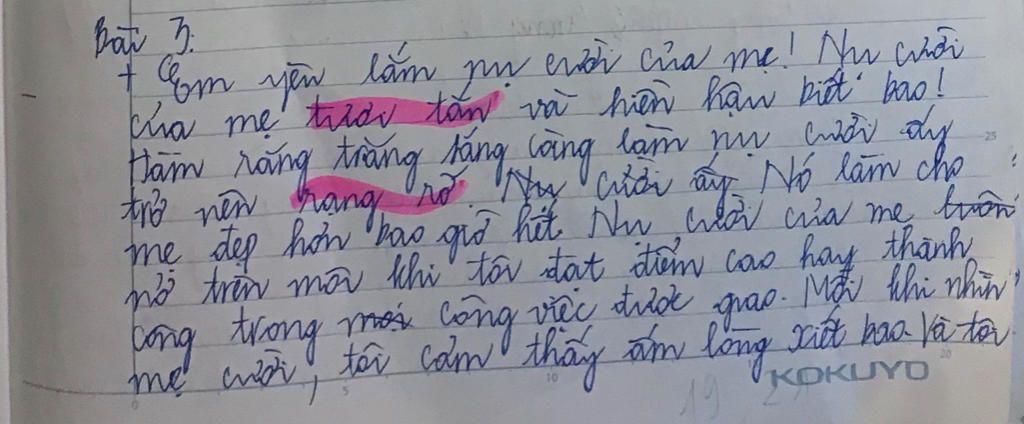 Bài 3:
+ Em yêu lắm nụ cười của mẹ! Nụ cười
của mẹ tươi tắn và hiền hậu biết bao!
Hàm răng trắng sáng càng làm nụ cười ấy
trở nên rạng rỡ. Nụ cười ấy Nó làm cho
mẹ đẹp hơn bao giờ hết. Nụ cười của mẹ luôn
nở trên môi khi tôi đạt điểm cao hay thành
công trong mọi công việc được giao. Mỗi khi nhìn
mẹ cười, tôi cảm thấy ấm lòng xiết bao. Và tôi
KOKUYO